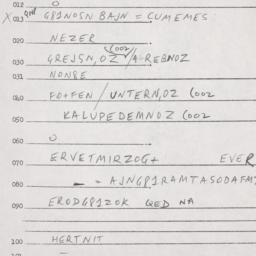 012 0
X 013 GØ1NOSN BAJN = CUMEMES
020 NEZER
(002
030 GREJSN,OZ / A-REBNOZ
031 NON8E
040 FO+FEN / UNTERN,OZ (002
050 KALUPEDEMNOZ (002
060 0
070 ERVETMIRZOG+ EVER
080 - = AJNG81RAMTASODAFM
090 ERODG81ZOK QED NA
100 HERTNIT